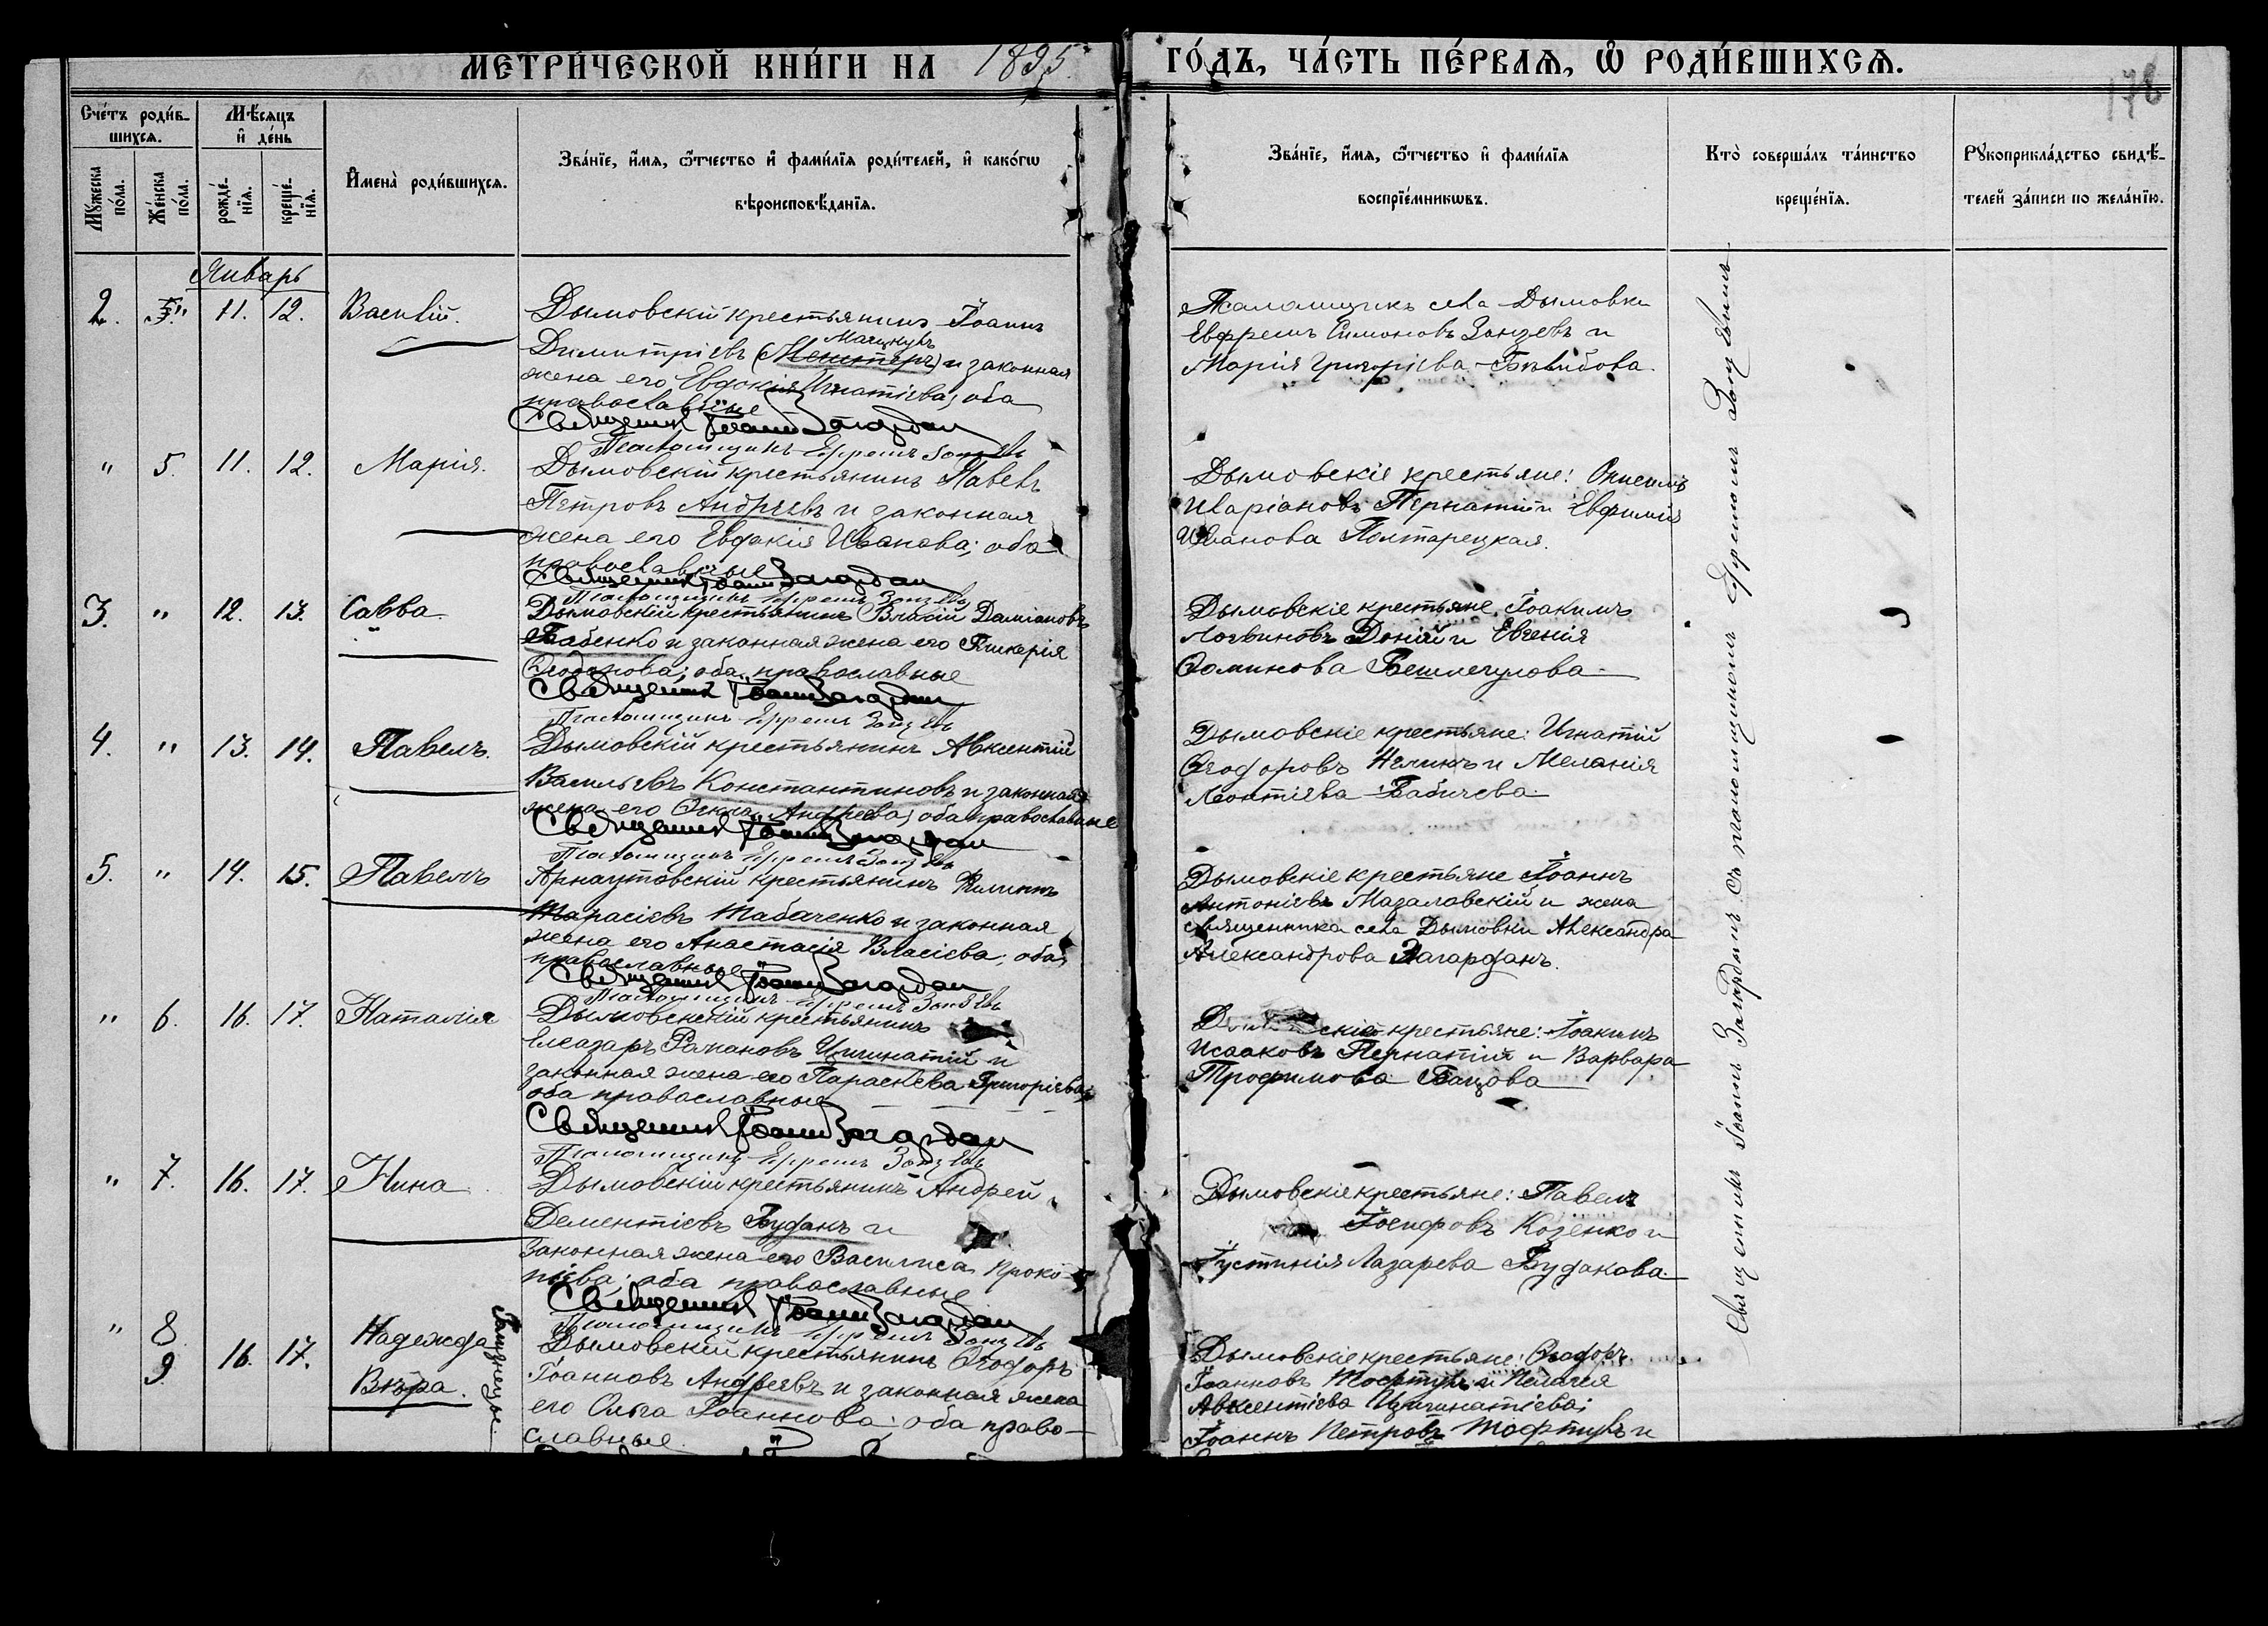 МЕТРИ́ЧЕСКОЙ КНИ́ГИ НА 1895.
ГО́ДЪ, ЧА́СТЬ ПЕ́РВАѦ, Ѡ҆ РОДИ́ВШИХСѦ.
178
Сче́тъ роди́в-
шихсѧ.
Мѣ́сѧцъ
и҆ де́нь
Мꙋ́жеска
по́ла.
Же́нска
по́ла.
рожде́-
нїѧ.
креще́-
нїѧ.
И҆мена̀ роди́вшихсѧ.
Зва́нїе, и҆́мѧ, ѻ҆́тчество и҆ фами́лїѧ роди́телей, и҆ како́гѡ
вѣроисповѣ́данїѧ.
Зва́нїе, и҆́мѧ, ѻ҆́тчество и҆ фами́лїѧ
воспрїе́мникѡвъ.
Кто̀ соверша́лъ та́инство
креще́нїѧ.
Рꙋкоприкла́дство свидѣ́-
телей за́писи по жела́нїю.
Январь
2. 11. 12. Василій.
Дымовскій крестьянинъ Іоаннъ
Димитріевъ ( ) и законная
жена его Евдокія Игнатіева; оба
православные
Священникъ Іоаннъ Загордан
Псаломщикъ Ефремъ Зонзевъ
Псаломщикъ села Дымовки
Ефремъ Симоновъ Зонзевъ и
Марія Григоріева
" 5. 11. 12. Марія.
Дымовскій крестьянинъ Павелъ
Петровъ Андреевъ и законная
жена его Евдокія Иванова; оба
православные
Священникъ Іоаннъ Загордан
Псаломщикъ Ефремъ Зонзевъ
Дымовскіе крестьяне: Онисимъ
Иларіановъ Пернатій и Евфимія
Иванова Полтарецкая.
3. " 12. 13. Савва.
Дымовскій крестьянинъ Власій Даміановъ
Бабенко и законная жена его Гликерія
Ѳеодорова; оба православные
Священникъ Іоаннъ Загордан
Псаломщикъ Ефремъ Зонзевъ
Дымовскіе крестьяне Іоакимъ
Логвиновъ Доній и Евгенія
Фоминова Бешлегулова
4. " 13. 14. Павелъ.
Дымовскій крестьянинъ Авксентій
Васильевъ Константиновъ и законная
жена его Андреева; оба православные
Священникъ Іоаннъ Загордан
Псаломщикъ Ефремъ Зонзевъ
Дымовскіе крестьяне: Игнатій
Ѳеодоровъ и Меланія
Леонтіева Бабичева.
5. " 14. 15. Павелъ
Арнаутовскій крестьянинъ Филиппъ
Тарасіевъ Табаченко и законная
жена его Анастасія Власіева; оба
православные
Священникъ Іоаннъ Загордан
Псаломщикъ Ефремъ Зонзевъ
Дымовскіе крестьяне Іоаннъ
Антоніевъ Мазаловскій и жена
священника села Дымовки Александра
Александрова Загарданъ.
" 6. 16. 17. Наталія
Дымовскій крестьянинъ
Елеазаръ Романовъ Цигинатій и
законная жена его Параскева Григоріева;
оба православные
Священникъ Іоаннъ Загордан
Псаломщикъ Ефремъ Зонзевъ
крестьяне: Іоакимъ
Исааковъ Пернатій и Варвара
Трофимова
" 7. 16. 17. Нина
Дымовскій крестьянинъ Андрей
Дементіевъ Буданъ и
законная жена его Василиса Проко-
піева; оба православные
Священникъ Іоаннъ Загордан
Псаломщикъ Ефремъ Зонзевъ
Дымовскіе крестьяне: Павелъ
Іосифовъ Козенко и
Іустинія Лазарева Будакова.
" 8. 9. 16. 17. Надежда
Вѣра.
Близнецы.
Дымовскій крестьянинъ Ѳеодоръ
Іоанновъ Андреевъ и законная жена
его Ольга Іоаннова; оба право-
славные.
Дымовскіе крестьяне: Ѳеодоръ
Іоанновъ Тофтулъ и Пелагея
Авксентіева Цигинатіева;
Іоаннъ Петровъ Тофтулъ и
Священникъ Іоаннъ Загорданъ съ псаломщикомъ Ефремомъ Зонзевымъ